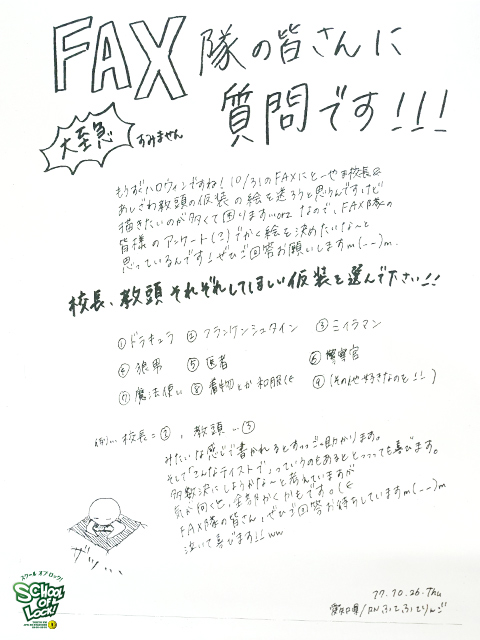 FAX隊の皆さんに
質問です!!!
大至急
すみません
もうすぐハロウィンですね! 10/31のFAXにとーやま校長&
あしざわ教頭の仮装の絵を送ろうと思うんですけど
描きたいのが多くて困りますworz なので、FAX隊の
皆様のアンケート(?)でかく絵を決めたいな〜と
思っているんです! ぜひご回答お願いしますm(--)m
校長、教頭それぞれしてほしい仮装を選んで下さい!!
①ドラキュラ ②フランケンシュタイン ③ミイラマン
④狼男 ⑤医者 ⑥警察官
⑦魔法使い ⑧着物とか和服 ⑨(その他好きなのを!!)
例) 校長=②, 教頭…③
みたいな感じで書かれるとすっっごい助かります。
そして「こんなテイストで」っていうのもあるととっっっても喜びます。
多数決にしようかな〜と考えていますが
気が向くと、全部かくかもです。
FAX隊の皆さん、ぜひご回答お待ちしていますm(--)m
泣いて喜びます!! ww
ザッ…
スクール オブ ロック!
SCHOOL OF LOCK!
17.10.26.Thu
愛知県/RN